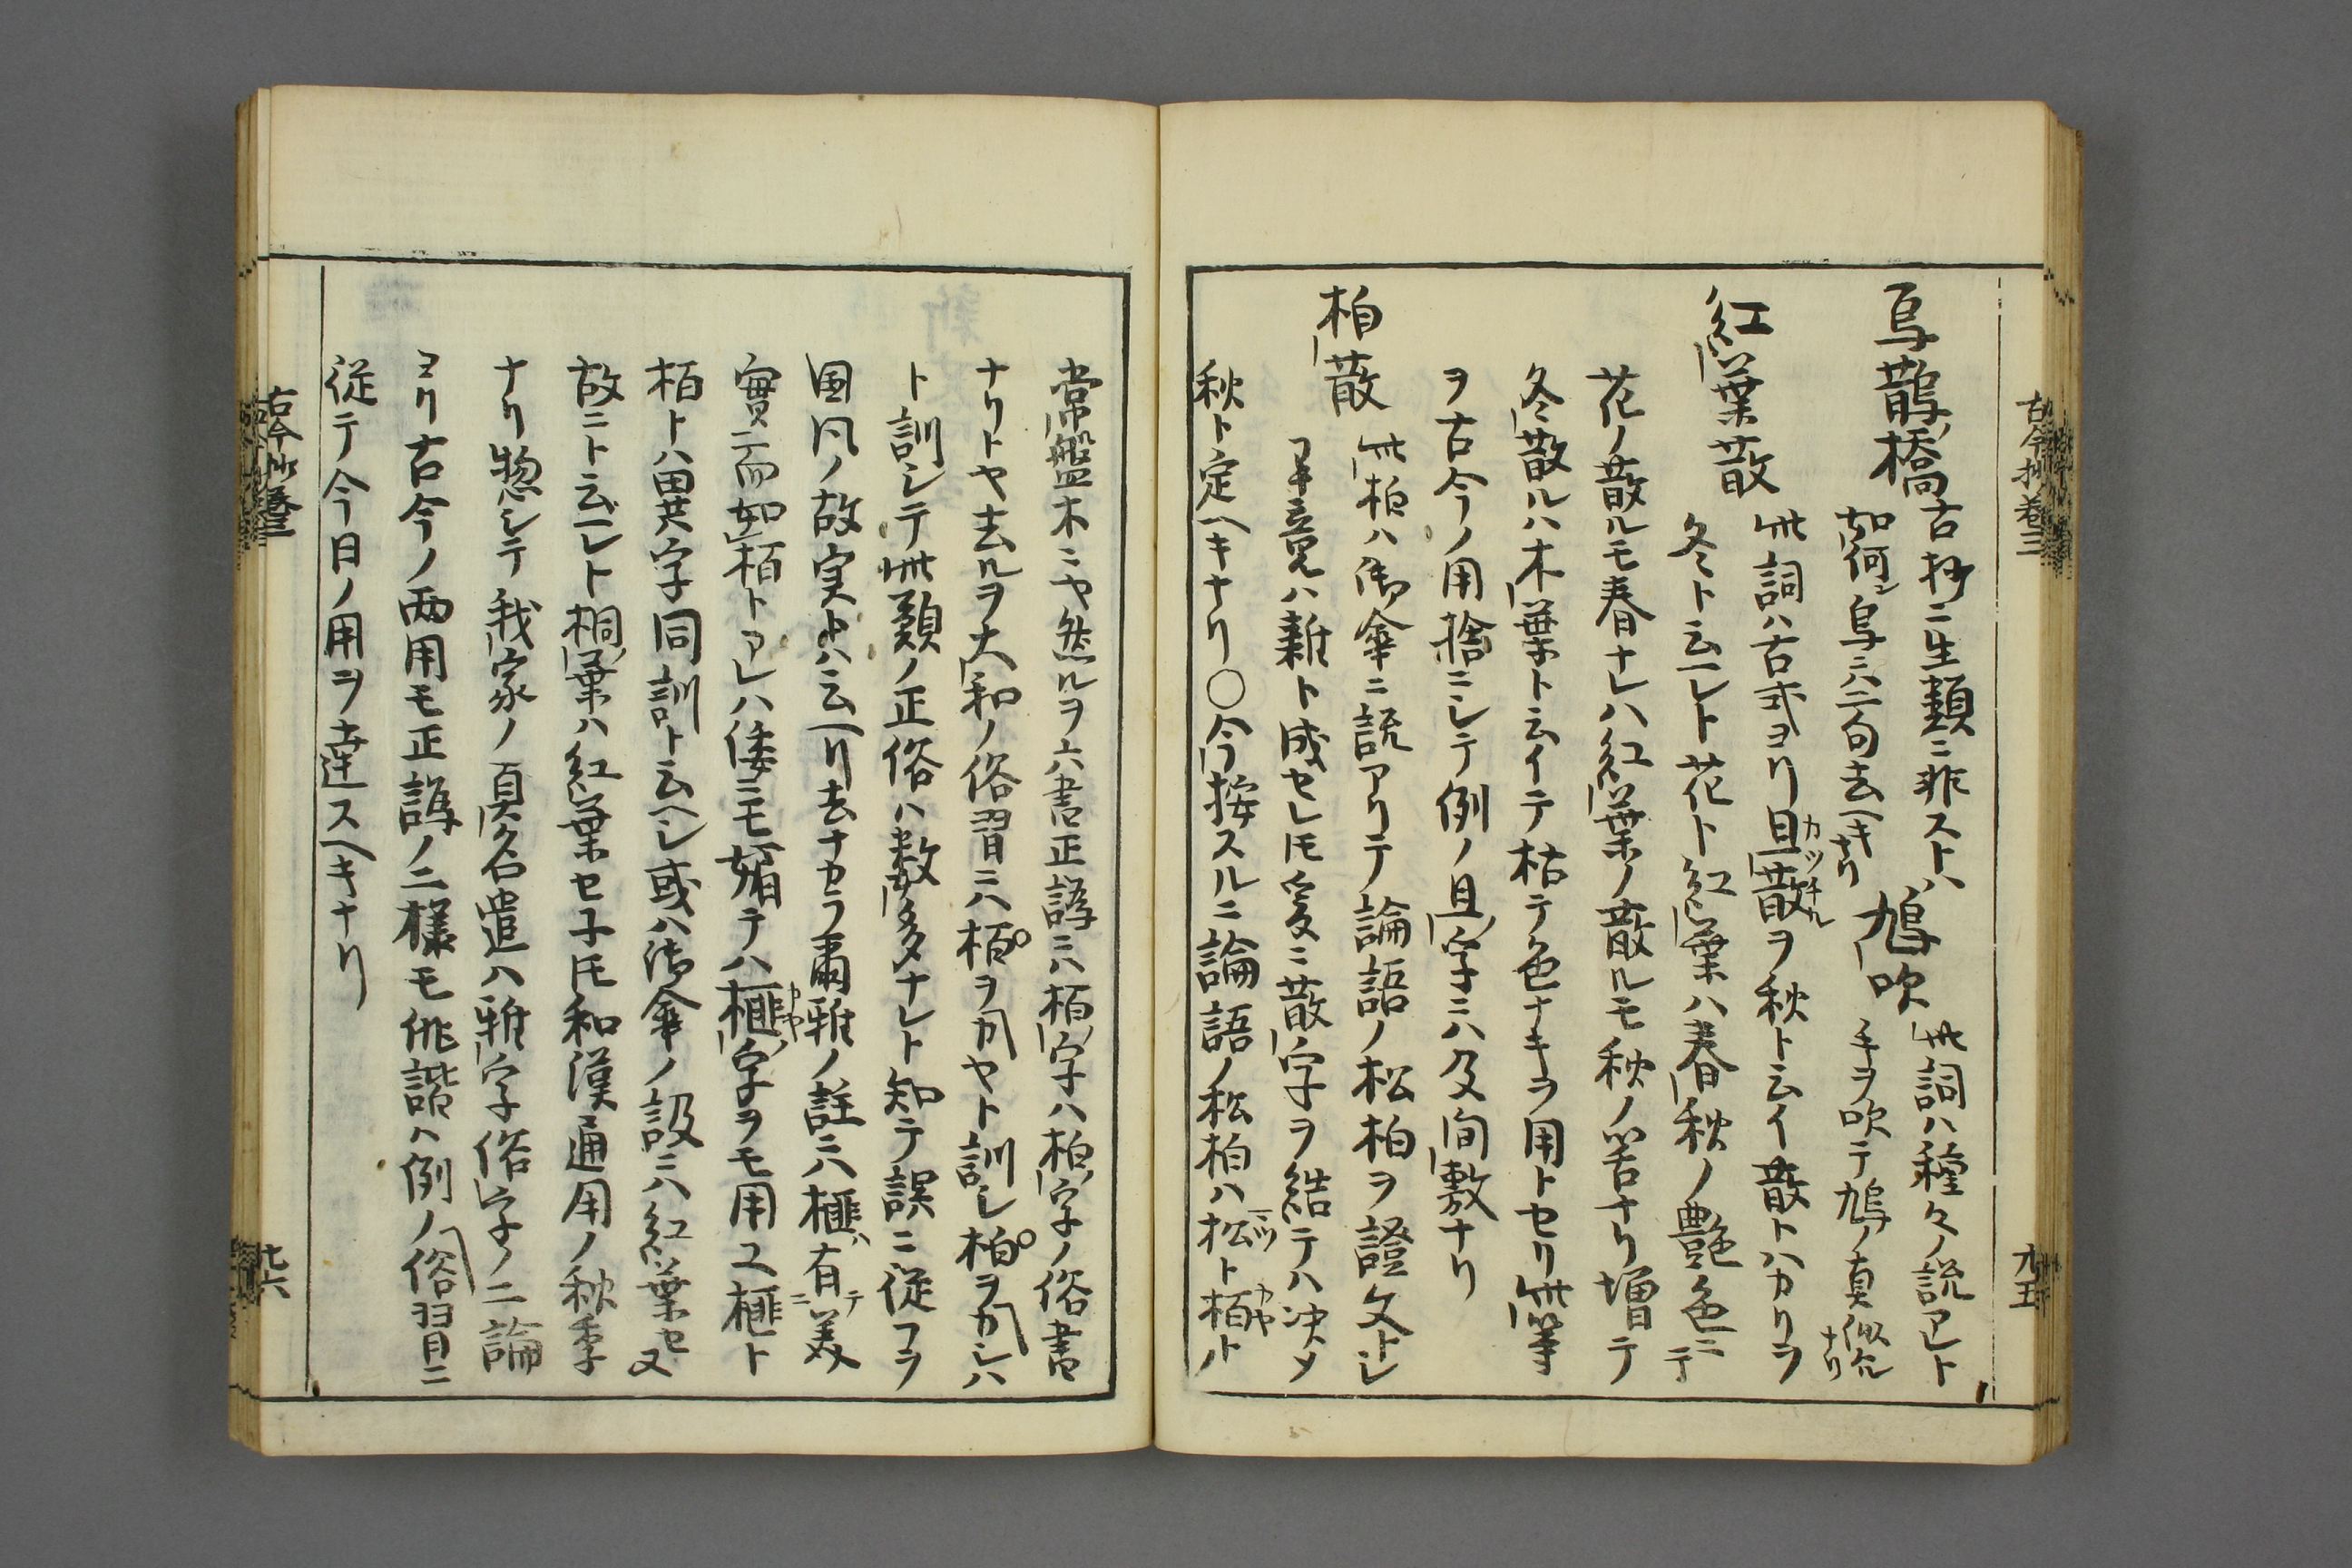 古今抄巻三
九五
烏鵲ノ橋 古抄ニ生類ニ非ストハ
如何シ烏ニハ二句去ヘキナリ
鳩吹 此詞ハ種々ノ説アレト
手ヲ吹テ鳩ノ真似スルナリ
紅葉散 此詞ハ古式ヨリ且散ヲ秋ト云イ散トハカリヲ
カツチル
冬ト云ヘレト花ト紅葉ハ春秋ノ艶色ニテ
花ノ散ルモ春ナレハ紅葉ノ散ルモ秋ノ筈ナリ増テ
冬散ルハ木ノ葉ト云イテ枯テ色ナキヲ用トセリ此等
ヲ古今ノ用捨ニシテ例ノ且ノ字ニハ及間敷ナリ
柏散 此柏ハ御傘ニ説アリテ論語ノ松柏ヲ證文トシ
了意見ハ雜ト成セレ𪜈爰ニ散ノ字ヲ結テハ决メ
秋ト定ヘキナリ〇今按スルニ論語ノ松柏ハ松ト栢ト
マツ
カヤ
常盤木ニヤ然ルヲ六書正譌ニハ栢ノ字ハ柏ノ字ノ俗書
ナリトヤ去ルヲ大和ノ俗習ニハ栢ヲカヤト訓シ柏ヲカシハ
ト訓シテ此類ノ正俗ハ数多ナレト知テ誤ニ従フヲ
国凡ノ故実トハ云ヘリ去ナカラ爾雅ノ註ニハ榧ハ有テ美
實ニ而如栢トアレハ倭ニモ媚テハ榧ノ字ヲモ用ユ榧ト
カヤ
栢トハ異字同訓ト云ヘシ或ハ御傘ノ説ニハ紅葉セヌ
故ニト云ヘレト桐ノ葉ハ紅葉セ子𪜈和漢通用ノ秋季
ナリ惣シテ我家ノ眞名遣ハ雅字俗字ノ二論
ヨリ古今ノ両用モ正譌ノ二樣モ俳諧ハ例ノ俗習ニ
従テ今日ノ用ヲ達スヘキナリ
古今抄巻三
七六